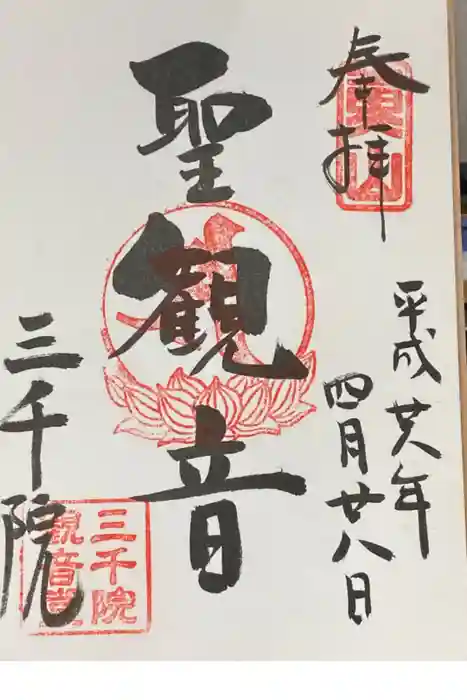 奉拝
平成廿八年
四月廿八日
聖観音
三千院
三千院
観音堂